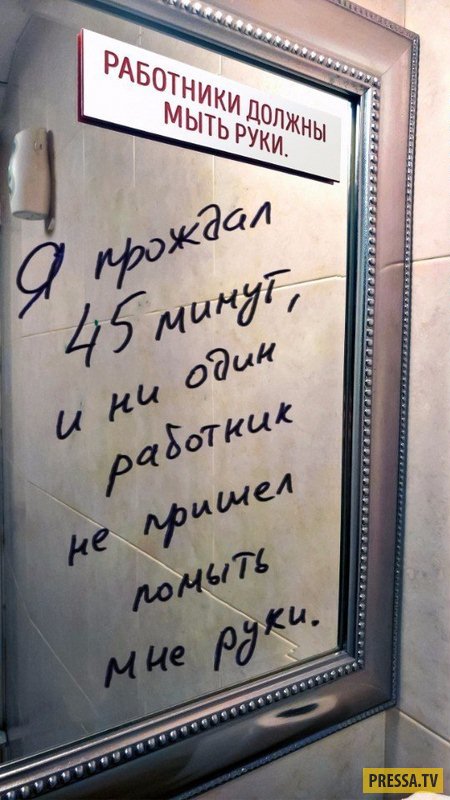 РАБОТНИКИ ДОЛЖНЫ
МЫТЬ РУКИ.
Я прождал
45 минут,
и ни один
работник
не пришел
помыть
мне руки.
PRESSA.TV